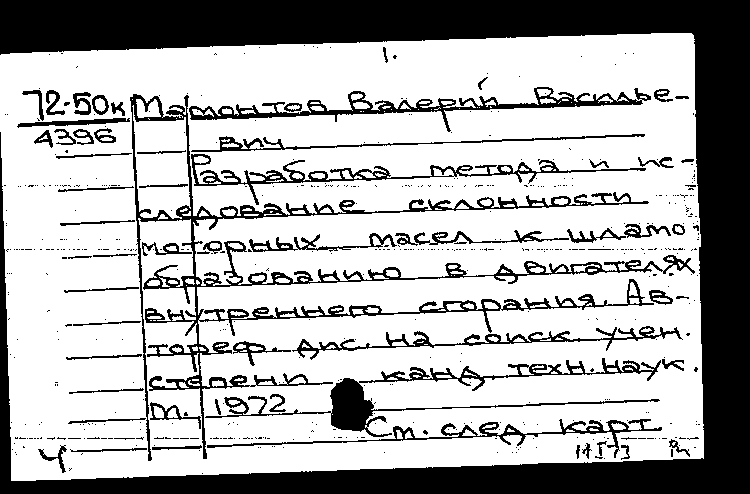 1.
72-50к Мамонтов, Валерий Василье-
4396
вич.
Разработка метода и ис-
следование склонности
моторных масел к шламо-
образованию в двигателях
внутреннего сгорания. Ав-
тореф. дис. на соиск. учен.
степени канд. техн. наук.
М. 1972.
См. след. карт.
Ч